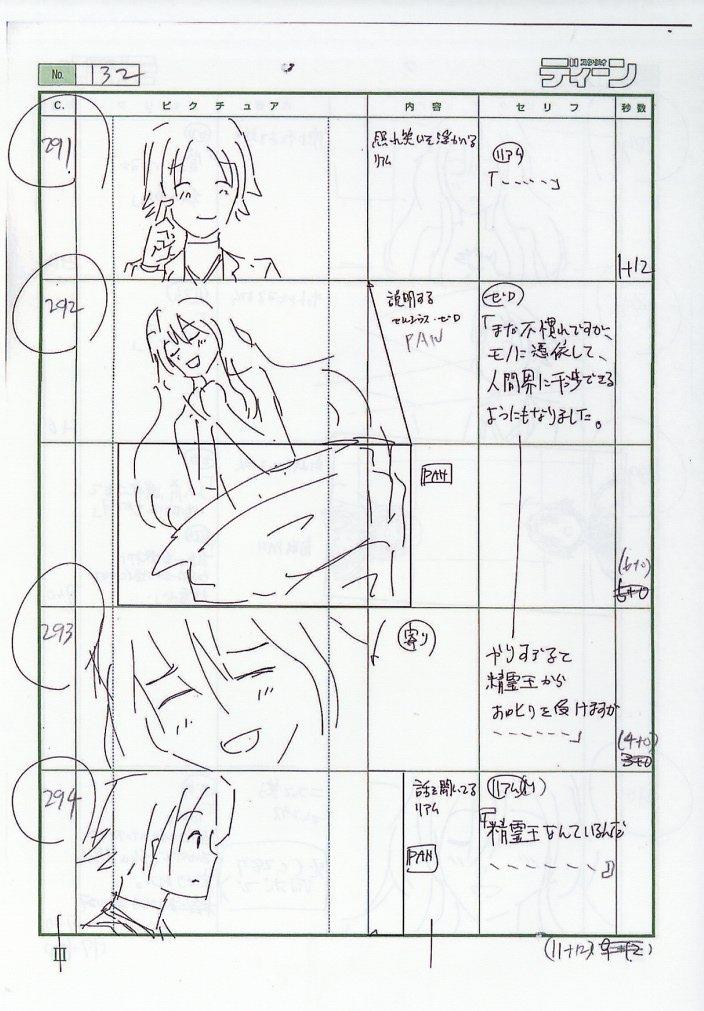 No. 132
スタジオ
ディーン
C. ピクチュア 内容 セリフ 秒数
291
リアム
リアム
「・・・・・」
1+12
292
説明する
セルシウス・ゼロ
PAN
ゼロ
「まだ不慣れですが、
モノに憑依して、
人間界に干渉できる
ようにもなりました。
PAN
(6+0)
5+0
293
寄り
やりすぎて
精霊王から
おしかりを受けますが
・・・・・・・」
(4+0)
3+0
294
話を聞いてる
リアム
PAN
リアム(M)
『精霊王なんているんだ
・・・・・・・』
III
(11+12)